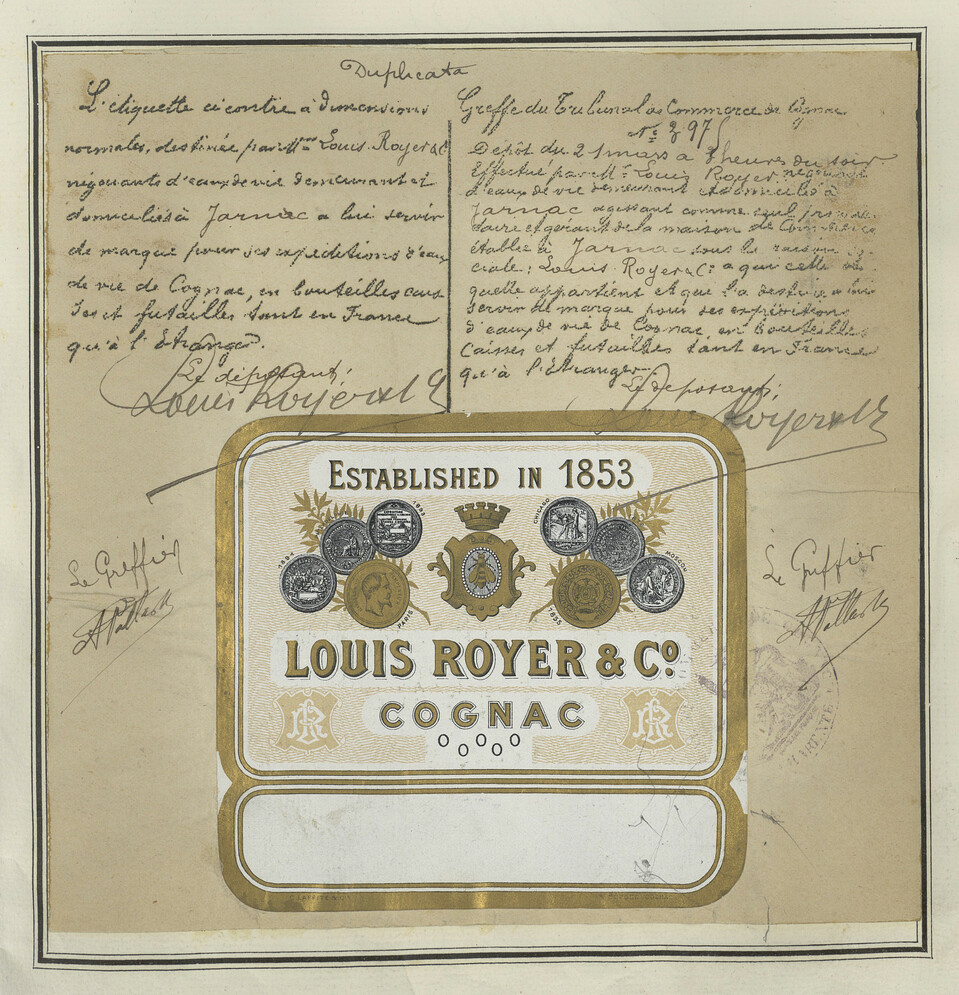 Duplicata
L'étiquette ci contre à dimensions
normales, destinée par Mr Louis Royer & Cie
négociants d'eaux de vie demeurant et
domiciliés à Jarnac a lui servir
de marque pour ses expéditions d'eaux
de vie de Cognac, en bouteilles cais
ses et futailles tant en France
qu'à l'étranger.
Le déposant,
Louis Royer & Cie
Greffe du Tribunal de Commerce de Cognac
No 397
Depôt du 21 mars a 3 heures du soir
Effectué par Mr Louis Royer négociant
d'eaux de vie demeurant et domicilié à
Jarnac agissant comme seul proprié-
taire et gérant de la maison de Commerce
établie à Jarnac sous la raison so-
ciale: Louis Royer & Cie a qui cette éti-
quette appartient et qui l'a destinée a lui
servir de marque pour ses expéditions
d'eaux de vie de Cognac en Bouteilles
Caisses et futailles tant en France
qu'à l'étranger.
Le déposant;
Louis Royer & Cie
Le Greffier
Le Greffier
ESTABLISHED IN 1853
1893
CHICAGO
1894
MOSCOU
PARIS
1855
LOUIS ROYER & Co.
COGNAC
O O O O O
LR
LR
CHARENTE